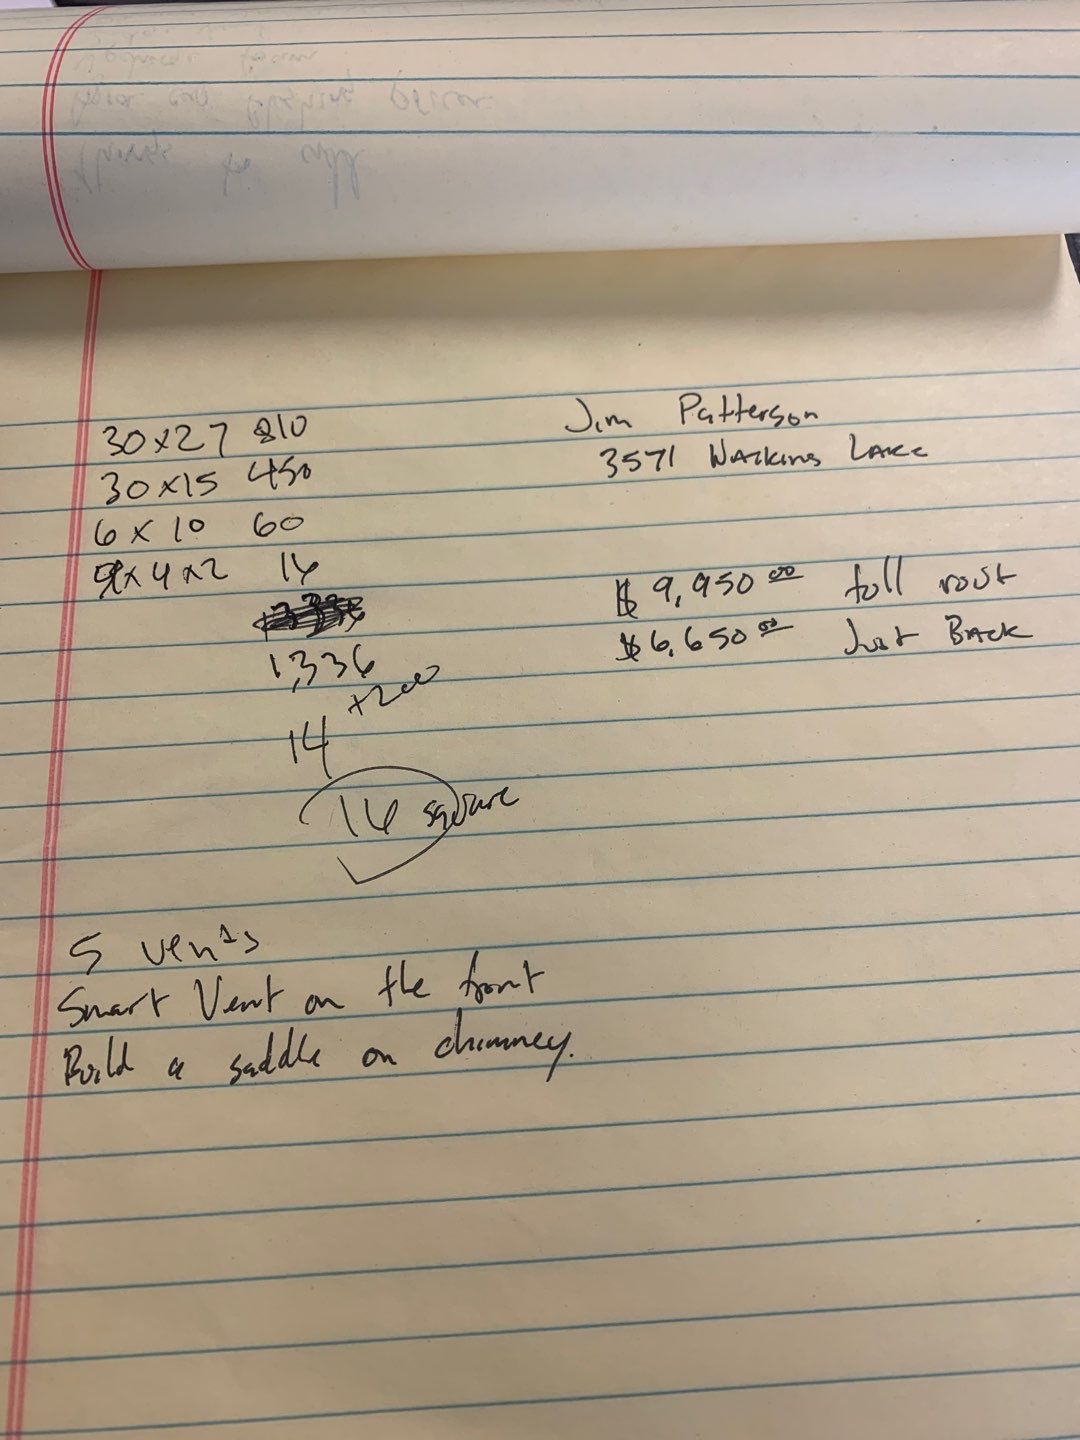 30 x 27 810
30 x 15 450
6 x 10 60
4 x 2 16
1,336
+200
14
16 square
Jim Patterson
3571 Watkins Lake
$9,950.00 full roof
$6,650.00 Just Back
5 vents
Smart Vent on the front
Build a saddle on chimney.